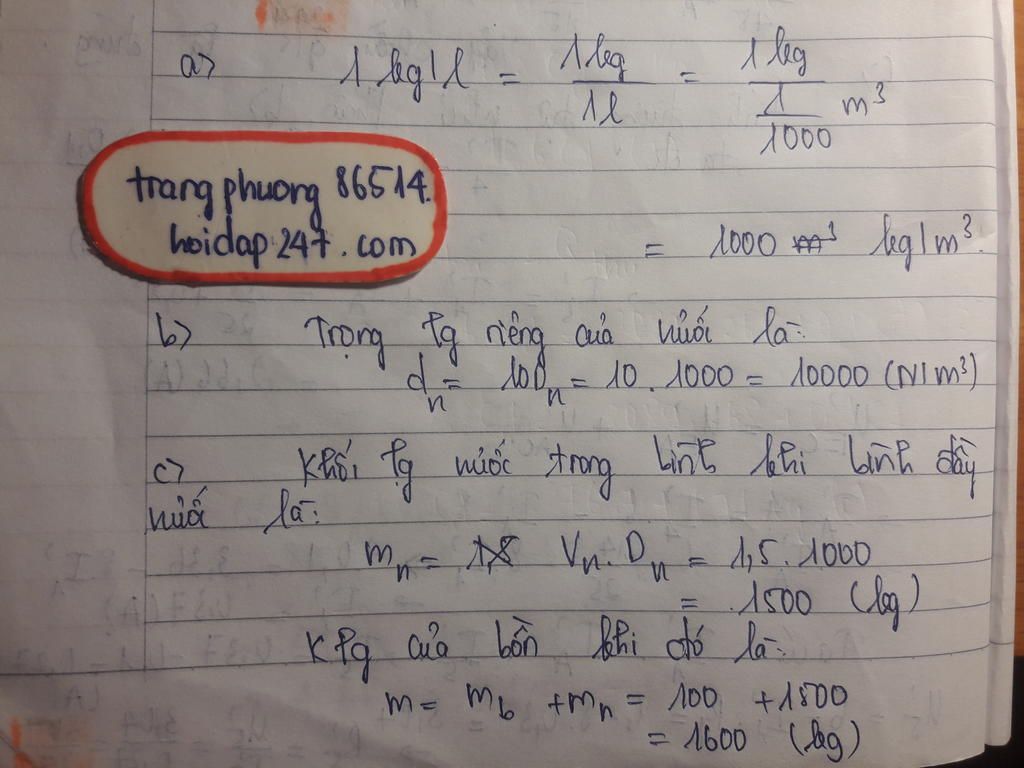 a> 1 kg/l = 1kg/1l = 1kg/(1/1000 m³)
trangphuong 86514.
hoidap247.com
= 1000 m³ kg/m³.
b> Trọng lg riêng của nước là:
dn = 10Dn = 10.1000 = 10000 (N/m³)
c> Khối lg nước trong bình khi bình đầy
nước là:
mn = 1,5 Vn.Dn = 1,5.1000
= 1500 (kg)
Klg của bồn khi đó là:
m = mb + mn = 100 + 1500
= 1600 (kg)